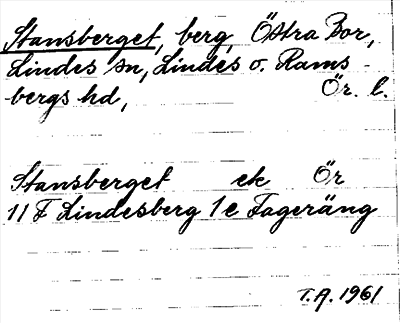 Stansberget, berg, Östra Bor,
Lindes sn, Lindes o. Rams-
bergs hd, Ör. l.
Stansberget ek Ör
11 F Lindesberg 1 e Fageräng
T.A. 1961